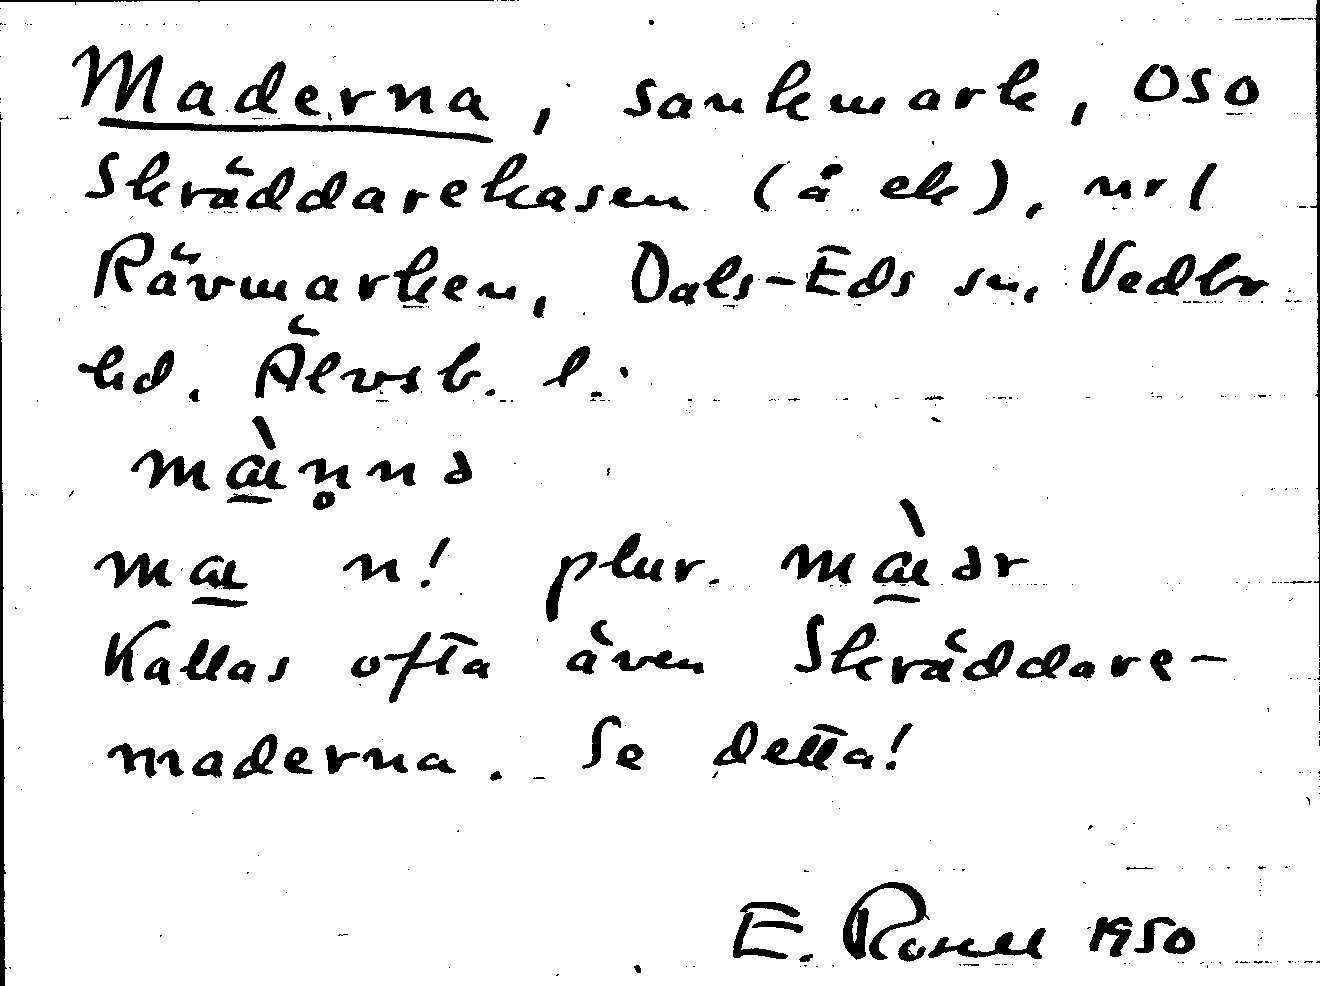 Maderna, sankmark, OSO
Skräddarekasen (å ek), nr 1
Rävmarken, Dals-Eds sn, Vedbo
hd. Älvsb. l.
mæ̱̀n̥nə
mæ̱ n! plur. mæ̱̀ər
Kallas ofta även Skräddare-
maderna. Se detta!
E. Rosell 1950